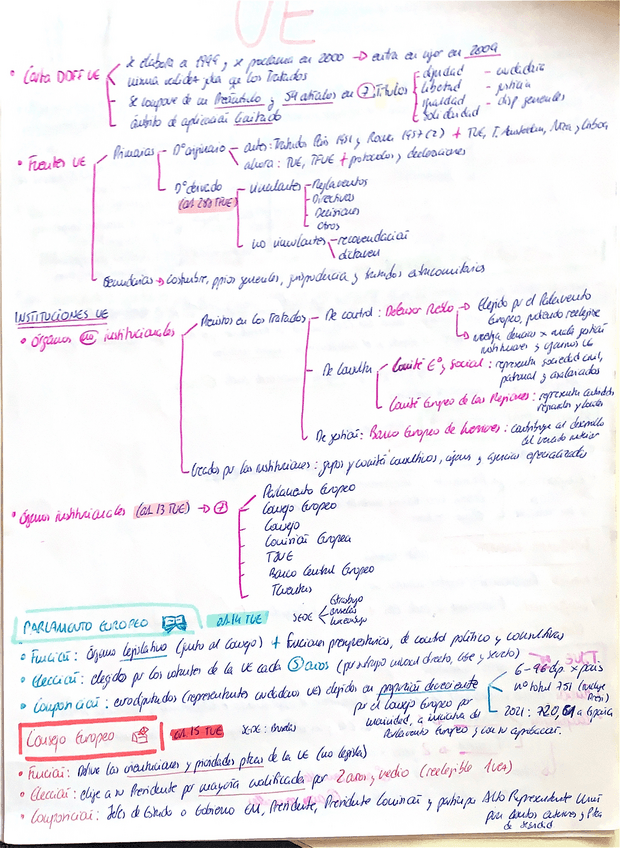 UE
• Carta DDFF UE
se elabora a 1999 y se proclama en 2000 → entra en vigor en 2009
misma validez jca que los Tratados
se compone de un Preámbulo y 54 artículos en 7 Títulos
dignidad - ciudadanía
libertad - justicia
igualdad - disp generales
solidaridad
ámbito de aplicación limitado
• Fuentes UE
Primarias
Dº originario
antes: Tratados París 1951 y Roma 1957 (2) + TUE, T. Amsterdam, Niza y Lisboa
ahora: TUE, TFUE + protocolos y declaraciones
Dº derivado
(art. 288 TFUE)
vinculantes
Reglamentos
Directivas
Decisiones
Otros
no vinculantes
recomendación
dictamen
Secundarias → costumbre, ppios generales, jurisprudencia y tratados extracomunitarios
INSTITUCIONES UE
• Órganos no institucionales
Previstos en los Tratados
De control: Defensor Pueblo
→ Elegido por el Parlamento
Europeo, pudiendo reelegirse
→ investiga denuncias x mala gestión
instituciones y organismos UE
De Consulta
Comité Eº y Social: representa sociedad civil,
patronal y asalariados
Comité Europeo de las Regiones: representa autoridades
regionales y locales
De gestión: Banco Europeo de Inversiones: contribuye al desarrollo
del mercado interior
Creados por las instituciones: grupos y comités consultivos, órganos y agencias especializadas
• Órganos institucionales (art. 13 TUE) → 7
Parlamento Europeo
Consejo Europeo
Consejo
Comisión Europea
TJUE
Banco Central Europeo
T Cuentas
PARLAMENTO EUROPEO
art. 14 TUE
SEDE
Estrasburgo
Bruselas
Luxemburgo
• Función: Órgano legislativo (junto al Consejo) + Funciones presupuestarias, de control político y consultivas
• Elección: elegidos por los votantes de la UE cada 5 años (por sufragio universal directo, libre y secreto)
• Composición: eurodiputados (representantes ciudadanos UE) elegidos en proporción decreciente
por el Consejo Europeo por
unanimidad, a iniciativa de
Parlamento Europeo y con su aprobación.
6-96 dip x país
nº total 751 (incluye
Presi)
2021: 720, 61 a España
Consejo Europeo
art. 15 TUE
SEDE: Bruselas
• Función: Define las orientaciones y prioridades pcas de la UE (no legisla)
• Elección: elige a su Presidente por mayoría cualificada por 2 años y medio (reelegible 1 vez)
• Composición: Jefes de Estado o Gobierno EM, Presidente, Presidente Comisión y participa Alto Representante Unión
para Asuntos exteriores y Pca
de seguridad